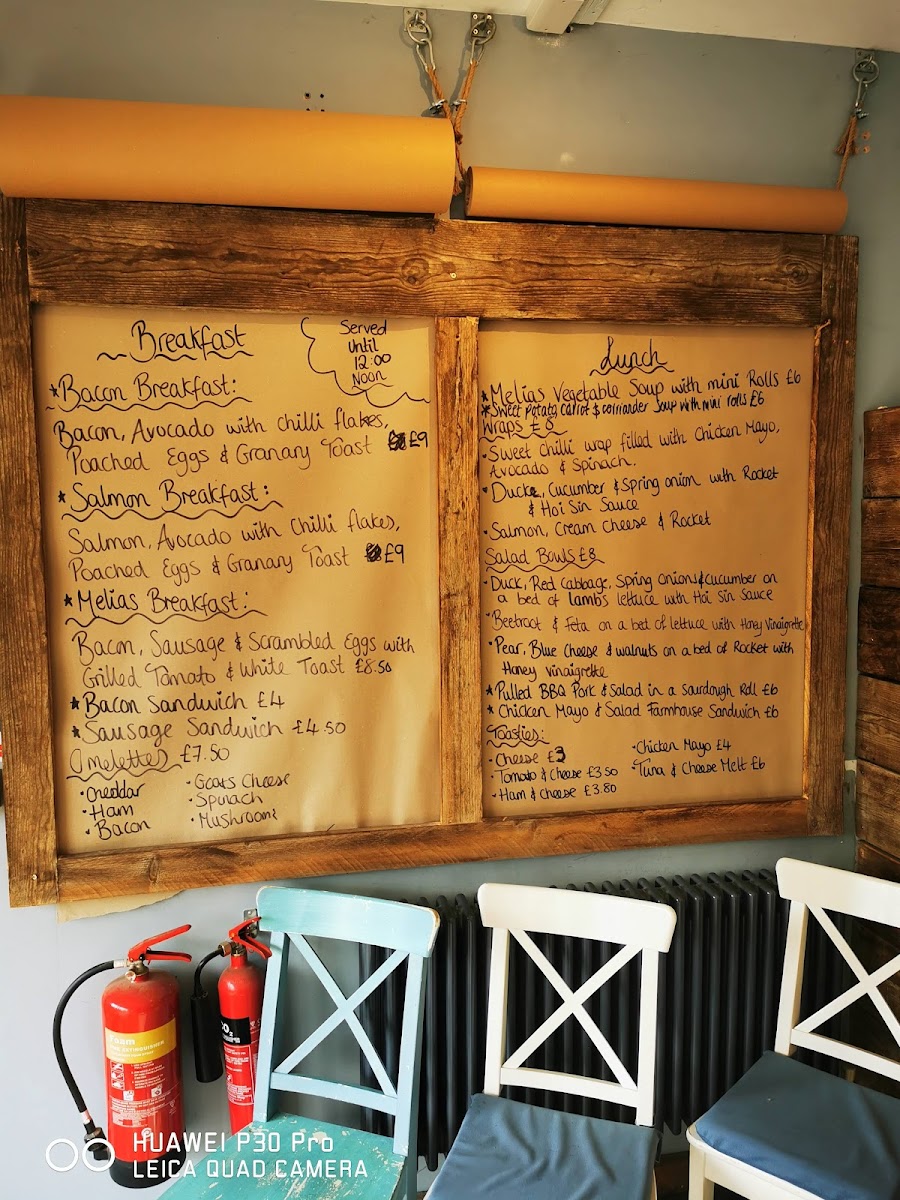 Breakfast
Served
Until
12:00
Noon
*Bacon Breakfast:
Bacon, Avocado with chilli flakes,
Poached Eggs & Granary Toast £9
*Salmon Breakfast:
Salmon, Avocado with chilli flakes,
Poached Eggs & Granary Toast £9
*Melias Breakfast:
Bacon, Sausage & Scrambled Eggs with
Grilled Tomato & White Toast £8.50
*Bacon Sandwich £4
*Sausage Sandwich £4.50
Omelettes £7.50
•Cheddar
•Ham
•Bacon
•Goats Cheese
•Spinach
•Mushrooms
Lunch
*Melias Vegetable Soup with mini Rolls £6
*Sweet Potato, Carrot & corriander Soup with mini rolls £6
Wraps £8
•Sweet chilli wrap filled with Chicken Mayo,
Avocado & Spinach.
•Duck, Cucumber & Spring onion with Rocket
& Hoi Sin Sauce
•Salmon, Cream Cheese & Rocket
Salad Bowls £8
•Duck, Red Cabbage, Spring Onions & cucumber on
a bed of lambs lettuce with Hoi Sin Sauce
•Beetroot & Feta on a bed of lettuce with Honey Vinaigrette
•Pear, Blue Cheese & walnuts on a bed of Rocket with
Honey vinaigrette
*Pulled BBQ Pork & Salad in a sourdough Roll £6
*Chicken Mayo & Salad Farmhouse Sandwich £6
Toasties:
•Cheese £3
•Tomato & Cheese £3.50
•Ham & Cheese £3.80
•Chicken Mayo £4
•Tuna & Cheese Melt £6
Foam
FIRE EXTINGUISHER
CO2
HUAWEI P30 Pro
LEICA QUAD CAMERA